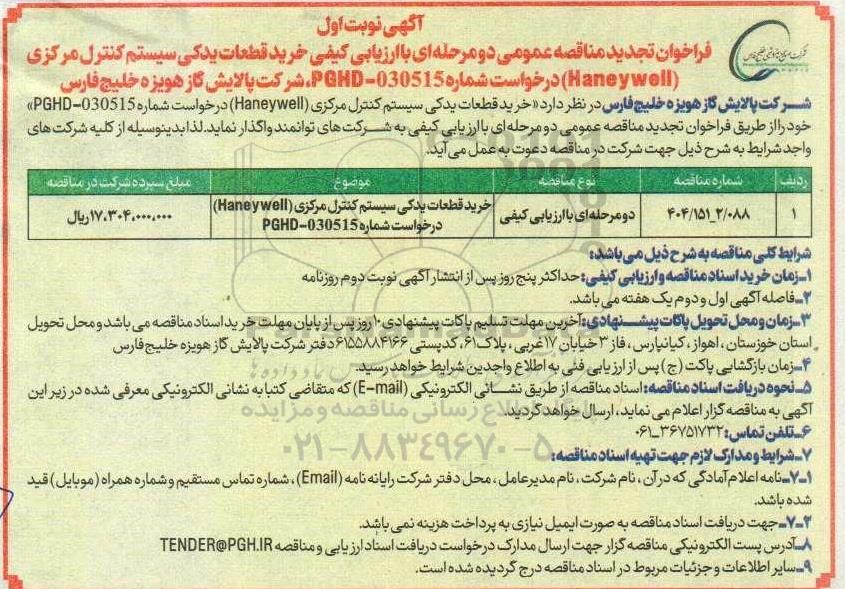 آگهی نوبت اول
فراخوان تجدید مناقصه عمومی دو مرحله‌ای با ارزیابی کیفی خرید قطعات یدکی سیستم کنترل مرکزی
(Haneywell) درخواست شماره PGHD-030515، شرکت پالایش گاز هویزه خلیج فارس
شرکت پالایش گاز هویزه خلیج فارس در نظر دارد «خرید قطعات یدکی سیستم کنترل مرکزی (Haneywell) درخواست شماره PGHD-030515»
خود را از طریق فراخوان تجدید مناقصه عمومی دو مرحله‌ای با ارزیابی کیفی به شرکت‌های توانمند واگذار نماید. لذا بدینوسیله از کلیه شرکت‌های
واجد شرایط به شرح ذیل جهت شرکت در مناقصه دعوت به عمل می‌آید.
ردیف شماره مناقصه نوع مناقصه موضوع مبلغ سپرده شرکت در مناقصه
۱ ۴۰۴/۱۵۱_۲/۰۸۸ دو مرحله‌ای با ارزیابی کیفی خرید قطعات یدکی سیستم کنترل مرکزی (Haneywell) ۱۷،۳۰۴،۰۰۰،۰۰۰ ریال
درخواست شماره PGHD-030515
شرایط کلی مناقصه به شرح ذیل می‌باشد:
۱_زمان خرید اسناد مناقصه و ارزیابی کیفی: حداکثر پنج روز پس از انتشار آگهی نوبت دوم روزنامه
۲_فاصله آگهی اول و دوم یک هفته می باشد.
۳_زمان و محل تحویل پاکات پیشنهادی: آخرین مهلت تسلیم پاکات پیشنهادی ۱۰ روز پس از پایان مهلت خرید اسناد مناقصه می باشد و محل تحویل
استان خوزستان، اهواز، کیانپارس، فاز ۳ خیابان ۱۷ غربی، پلاک ۶۱، کدپستی ۶۱۵۵۸۸۴۱۶۶ دفتر شرکت پالایش گاز هویزه خلیج فارس
۴_زمان بازگشایی پاکت (ج) پس از ارزیابی فنی به اطلاع واجدین شرایط خواهد رسید.
۵_نحوه دریافت اسناد مناقصه: اسناد مناقصه از طریق نشانی الکترونیکی (E-mail) که متقاضی کتبا به نشانی الکترونیکی معرفی شده در زیر این
آگهی به مناقصه گزار اعلام می نماید، ارسال خواهد گردید.
۶_تلفن تماس: ۳۶۷۵۱۷۳۲_۰۶۱
۷_شرایط و مدارک لازم جهت تهیه اسناد مناقصه:
۷_۱_نامه اعلام آمادگی که در آن، نام شرکت، نام مدیرعامل، محل دفتر شرکت رایانه نامه (Email)، شماره تماس مستقیم و شماره همراه (موبایل) قید
شده باشد.
۷_۲_جهت دریافت اسناد مناقصه به صورت ایمیل نیازی به پرداخت هزینه نمی باشد.
۸_آدرس پست الکترونیکی مناقصه گزار جهت ارسال مدارک درخواست دریافت اسناد ارزیابی و مناقصه TENDER@PGH.IR
۹_سایر اطلاعات و جزئیات مربوط در اسناد مناقصه درج گردیده شده است.
۰۲۱-۸۸۳۴۹۶۷۰-۵